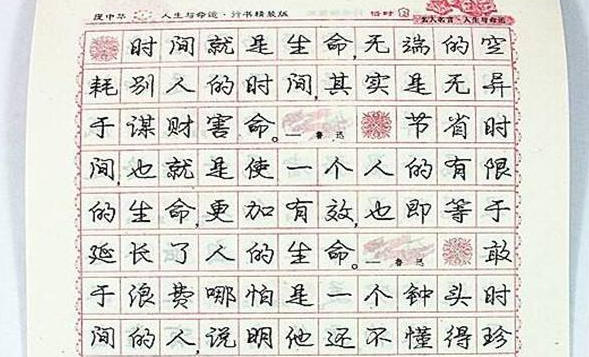 庞中华 人生与命运·行书精装版 惜时
名人名言·人生与命运
时间就是生命,无端的空
耗别人的时间,其实是无异
于谋财害命。—鲁迅 节省时
间,也就是使一个人的有限
的生命,更加有效,也即等于
延长了人的生命。—鲁迅 敢
于浪费哪怕是一个钟头时
间的人,说明他还不懂得珍